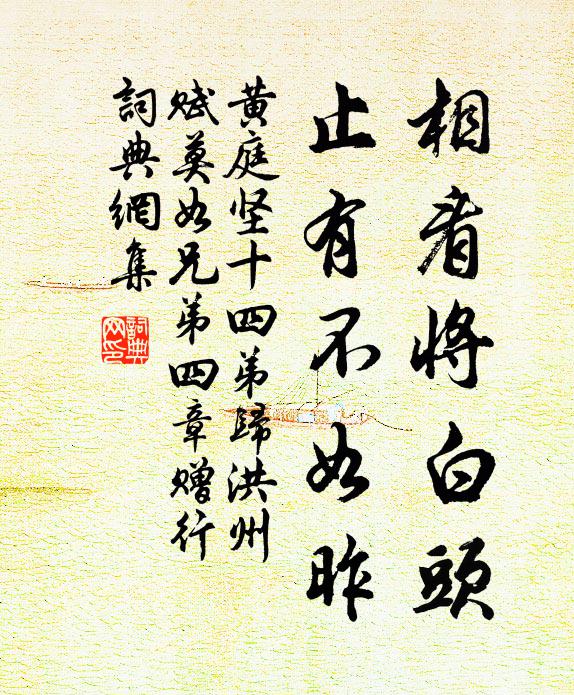 相看將白頭
止有不如昨
黄庭坚十四弟歸洪州
赋莫如兄弟四章赠行
詞典網集
詞典网印